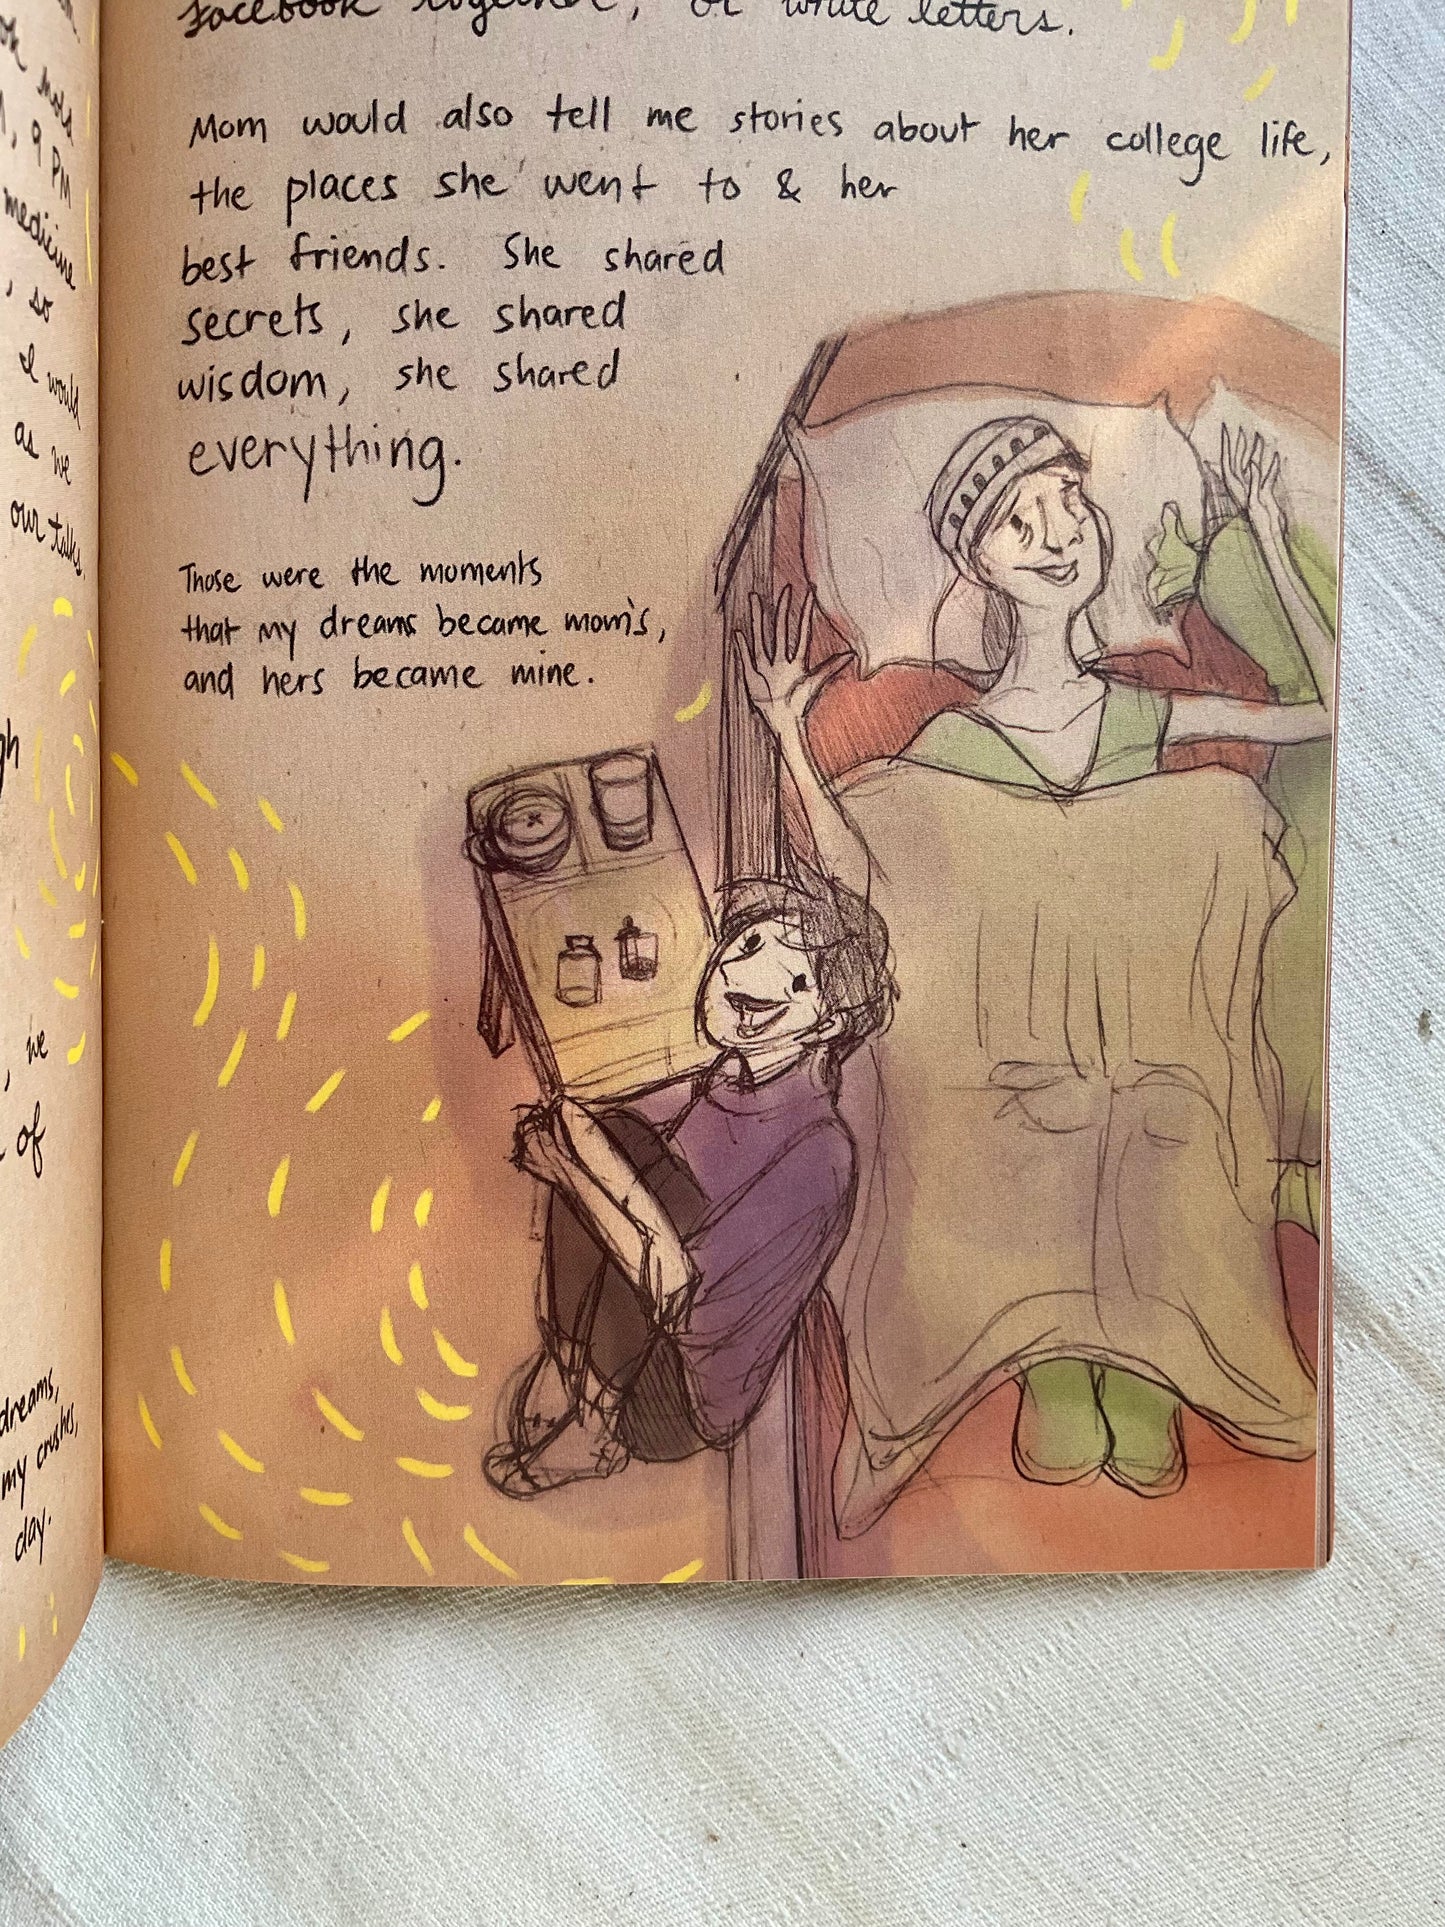 ok mold
9 PM
medicine
, so
I would
as we
our talks.
gh
, we
of
dreams,
my crushes,
day.
Facebook together, or write letters.
Mom would also tell me stories about her college life,
the places she went to & her
best friends. She shared
secrets, she shared
wisdom, she shared
everything.
Those were the moments
that my dreams became mom's,
and hers became mine.